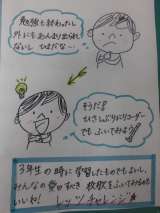 勉強も終わったし
外にもあんまり出られ
ないし ひまだな…
そうだ!!
ひさしぶりにリコーダー
でもふいてみよう!!
3年生の時に学習したものでもよいし、
みんなの愛のすきな校歌をふいてみるのも
いいね! レッツチャレンジ☆